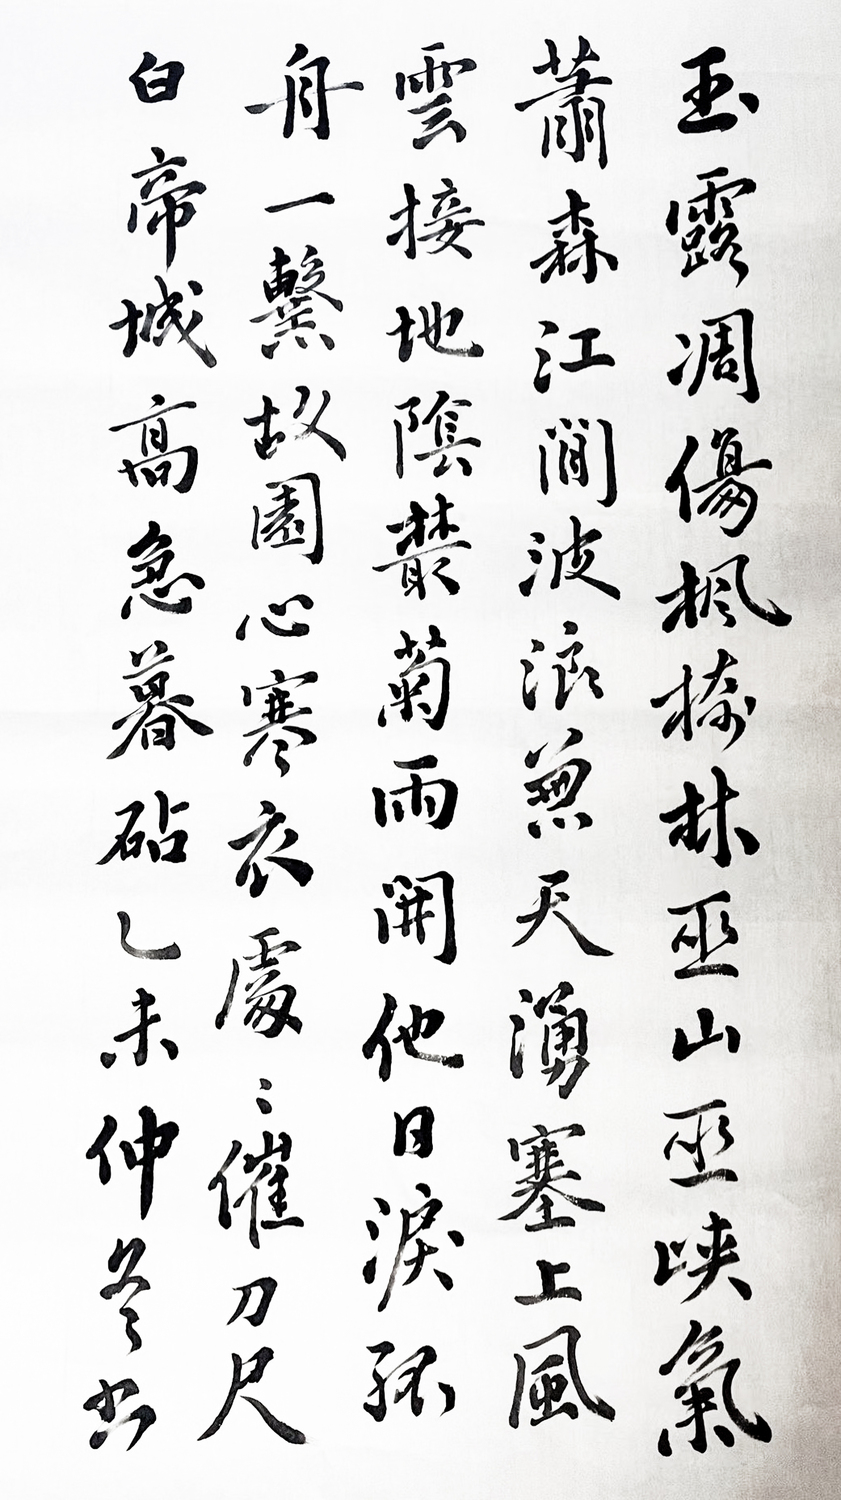 玉露凋傷楓樹林巫山巫峽氣
蕭森江間波浪兼天湧塞上風
雲接地陰叢菊兩開他日淚孤
舟一繫故園心寒衣處〻催刀尺
白帝城高急暮砧乙未仲冬书